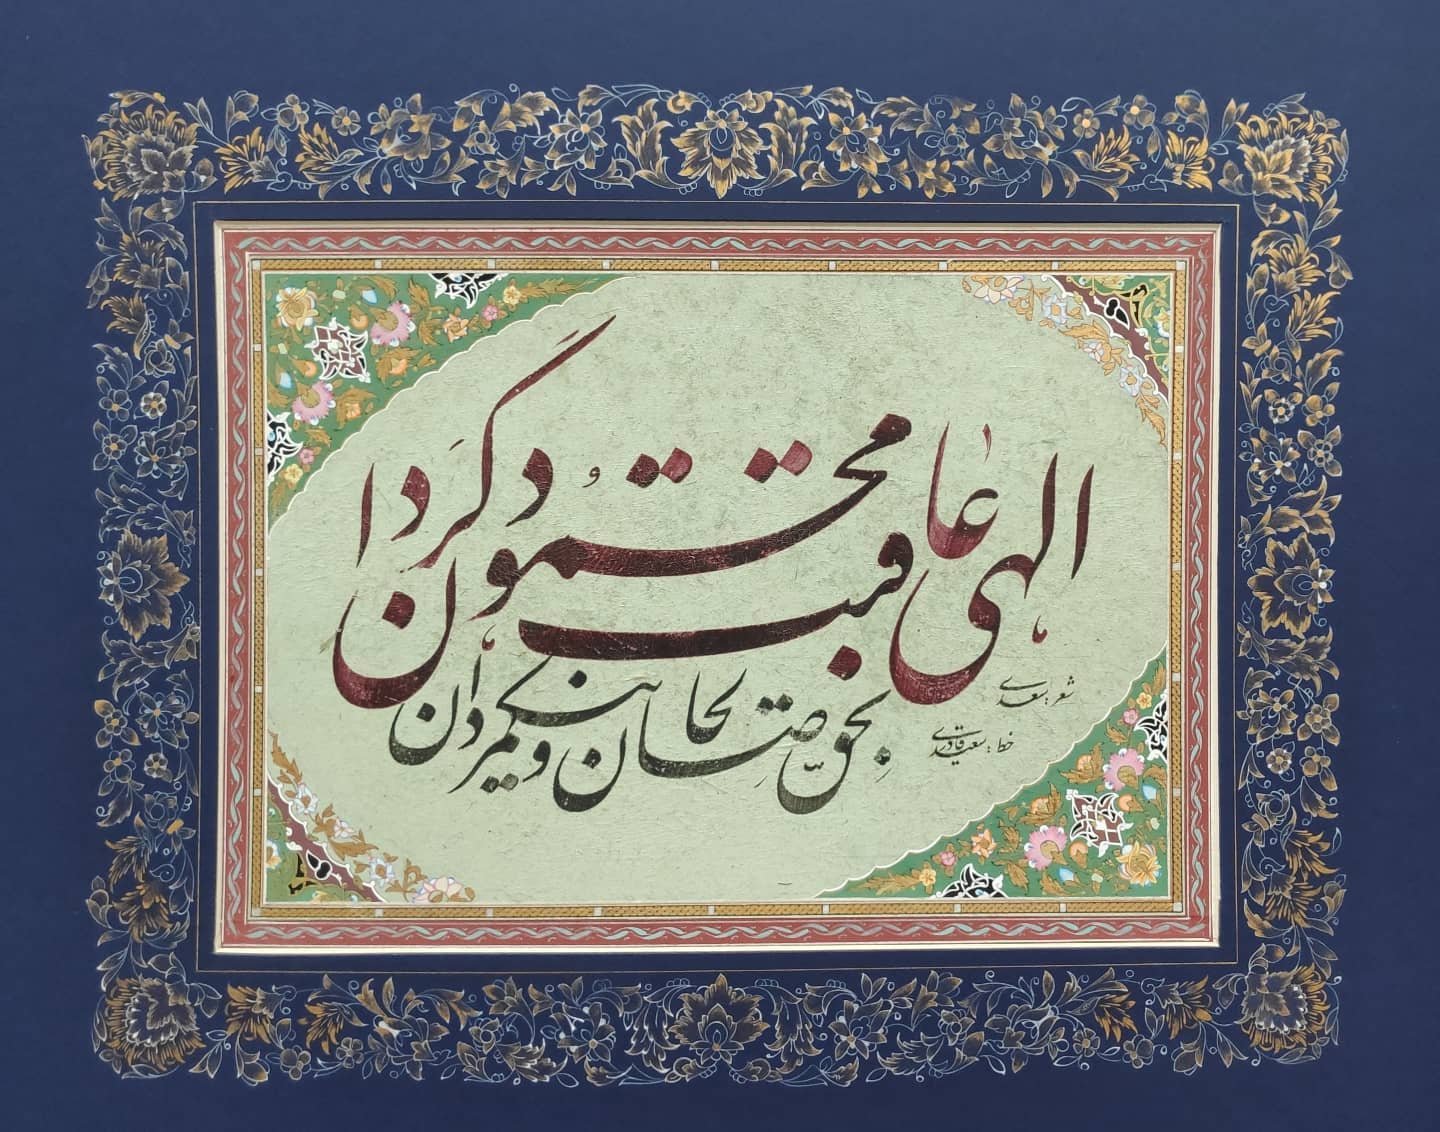 الهی عاقبت محمود گردان
بحق صالحان و نیکمردان
شعر: سعدی
خط: سعید قادری